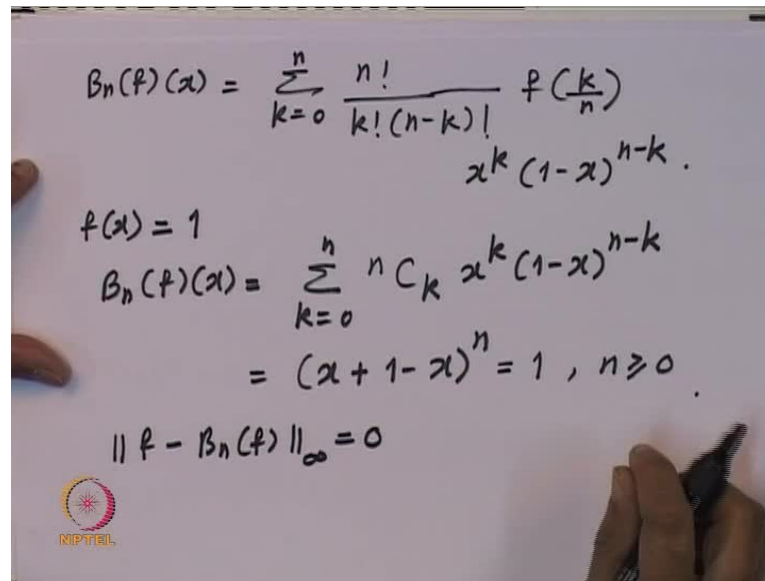 Bn(f)(x) = n Σ k=0 n! / k!(n-k)! f(k/n)
x^k (1-x)^{n-k} .
f(x) = 1
Bn(f)(x) = n Σ k=0 nCk x^k (1-x)^{n-k}
= (x + 1-x)^n = 1 , n ⩾ 0 .
|| f - Bn(f) ||∞ = 0
NPTEL